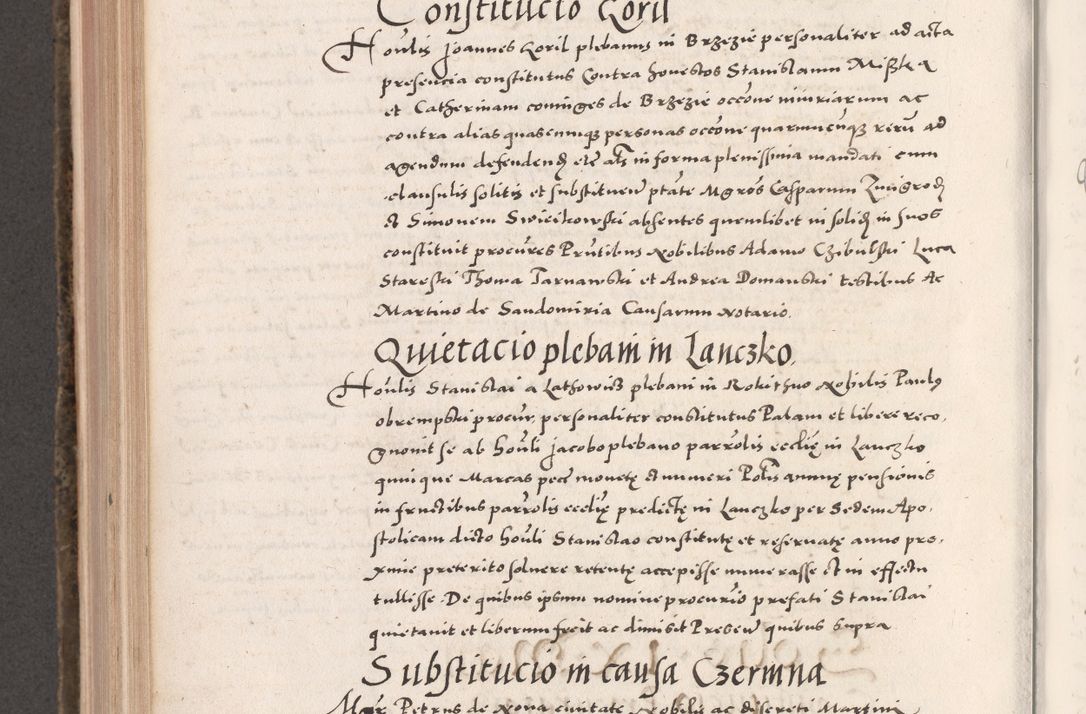 Constitucio Koril
Honlis Joannes Koril plebanus in Brzezie personaliter ad acta
presencia constitutus Contra honestos Stanislaum Mißka
et Catherinam coniuges de Brzezie occone iniuriarum ac
contra alias quascumqz personas occone quarumcumqz rerum ad
agendum defendend etc als in forma plenissima mandati cum
clausulis solitis et substituen ptate Mgros Casparum Zmigrod
et Simonem Swieczkowski absentes quemlibet in solid in suos
constituit procures Pntibus Nobilibus Adamo Czibulski Luca
Stareski Thoma Tarnawski et Andrea Domanski testibus Ac
Martino de Sandomiria Causarum Notario.
Quietacio plebani in Lanczko.
Honlis Stanislai a Lathowicz plebani in Rokithno Nobilis Paulus
obrempski procur, personaliter constitutus Palam et libere reco,
gnouit se ab honli Jacobo plebano parrolis ecclię in Lanczko
quinque Marcas pecc monetę et numeri Polis annuę pensionis
in fructibus parrolis ecclię predictę in Lanczko per Sedem Apo,
stolicam dicto honli Stanislao constitutę et reseruatę anno pro,
xime preterito soluere retentę accepisse numerasse et in effectu
tullisse. De quibus ipsum nomine procurio prefati Stanislai
quietauit et liberum fecit ac dimisit Presen quibus supra
Substitucio in causa Czermna
Mgr Petrus de Noua ciuitate Nobilis ac discreti Martini